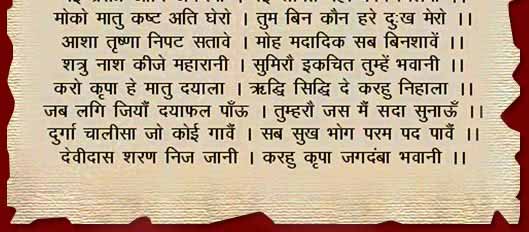 मोको मातु कष्ट अति घेरो । तुम बिन कौन हरे दुःख मेरो ।।
आशा तृष्णा निपट सतावे । मोह मदादिक सब बिनशावें ।
शत्रु नाश कीजे महारानी । सुमिरौ इकचित तुम्हें भवानी ।।
करो कृपा हे मातु दयाला । ऋद्धि सिद्धि दे करहु निहाला ।।
जब लगि जियौं दयाफल पाँऊ । तुम्हरौ जस मैं सदा सुनाऊँ ।।
दुर्गा चालीसा जो कोई गावैं । सब सुख भोग परम पद पावैं ।।
देवीदास शरण निज जानी । करहु कृपा जगदंबा भवानी ।।